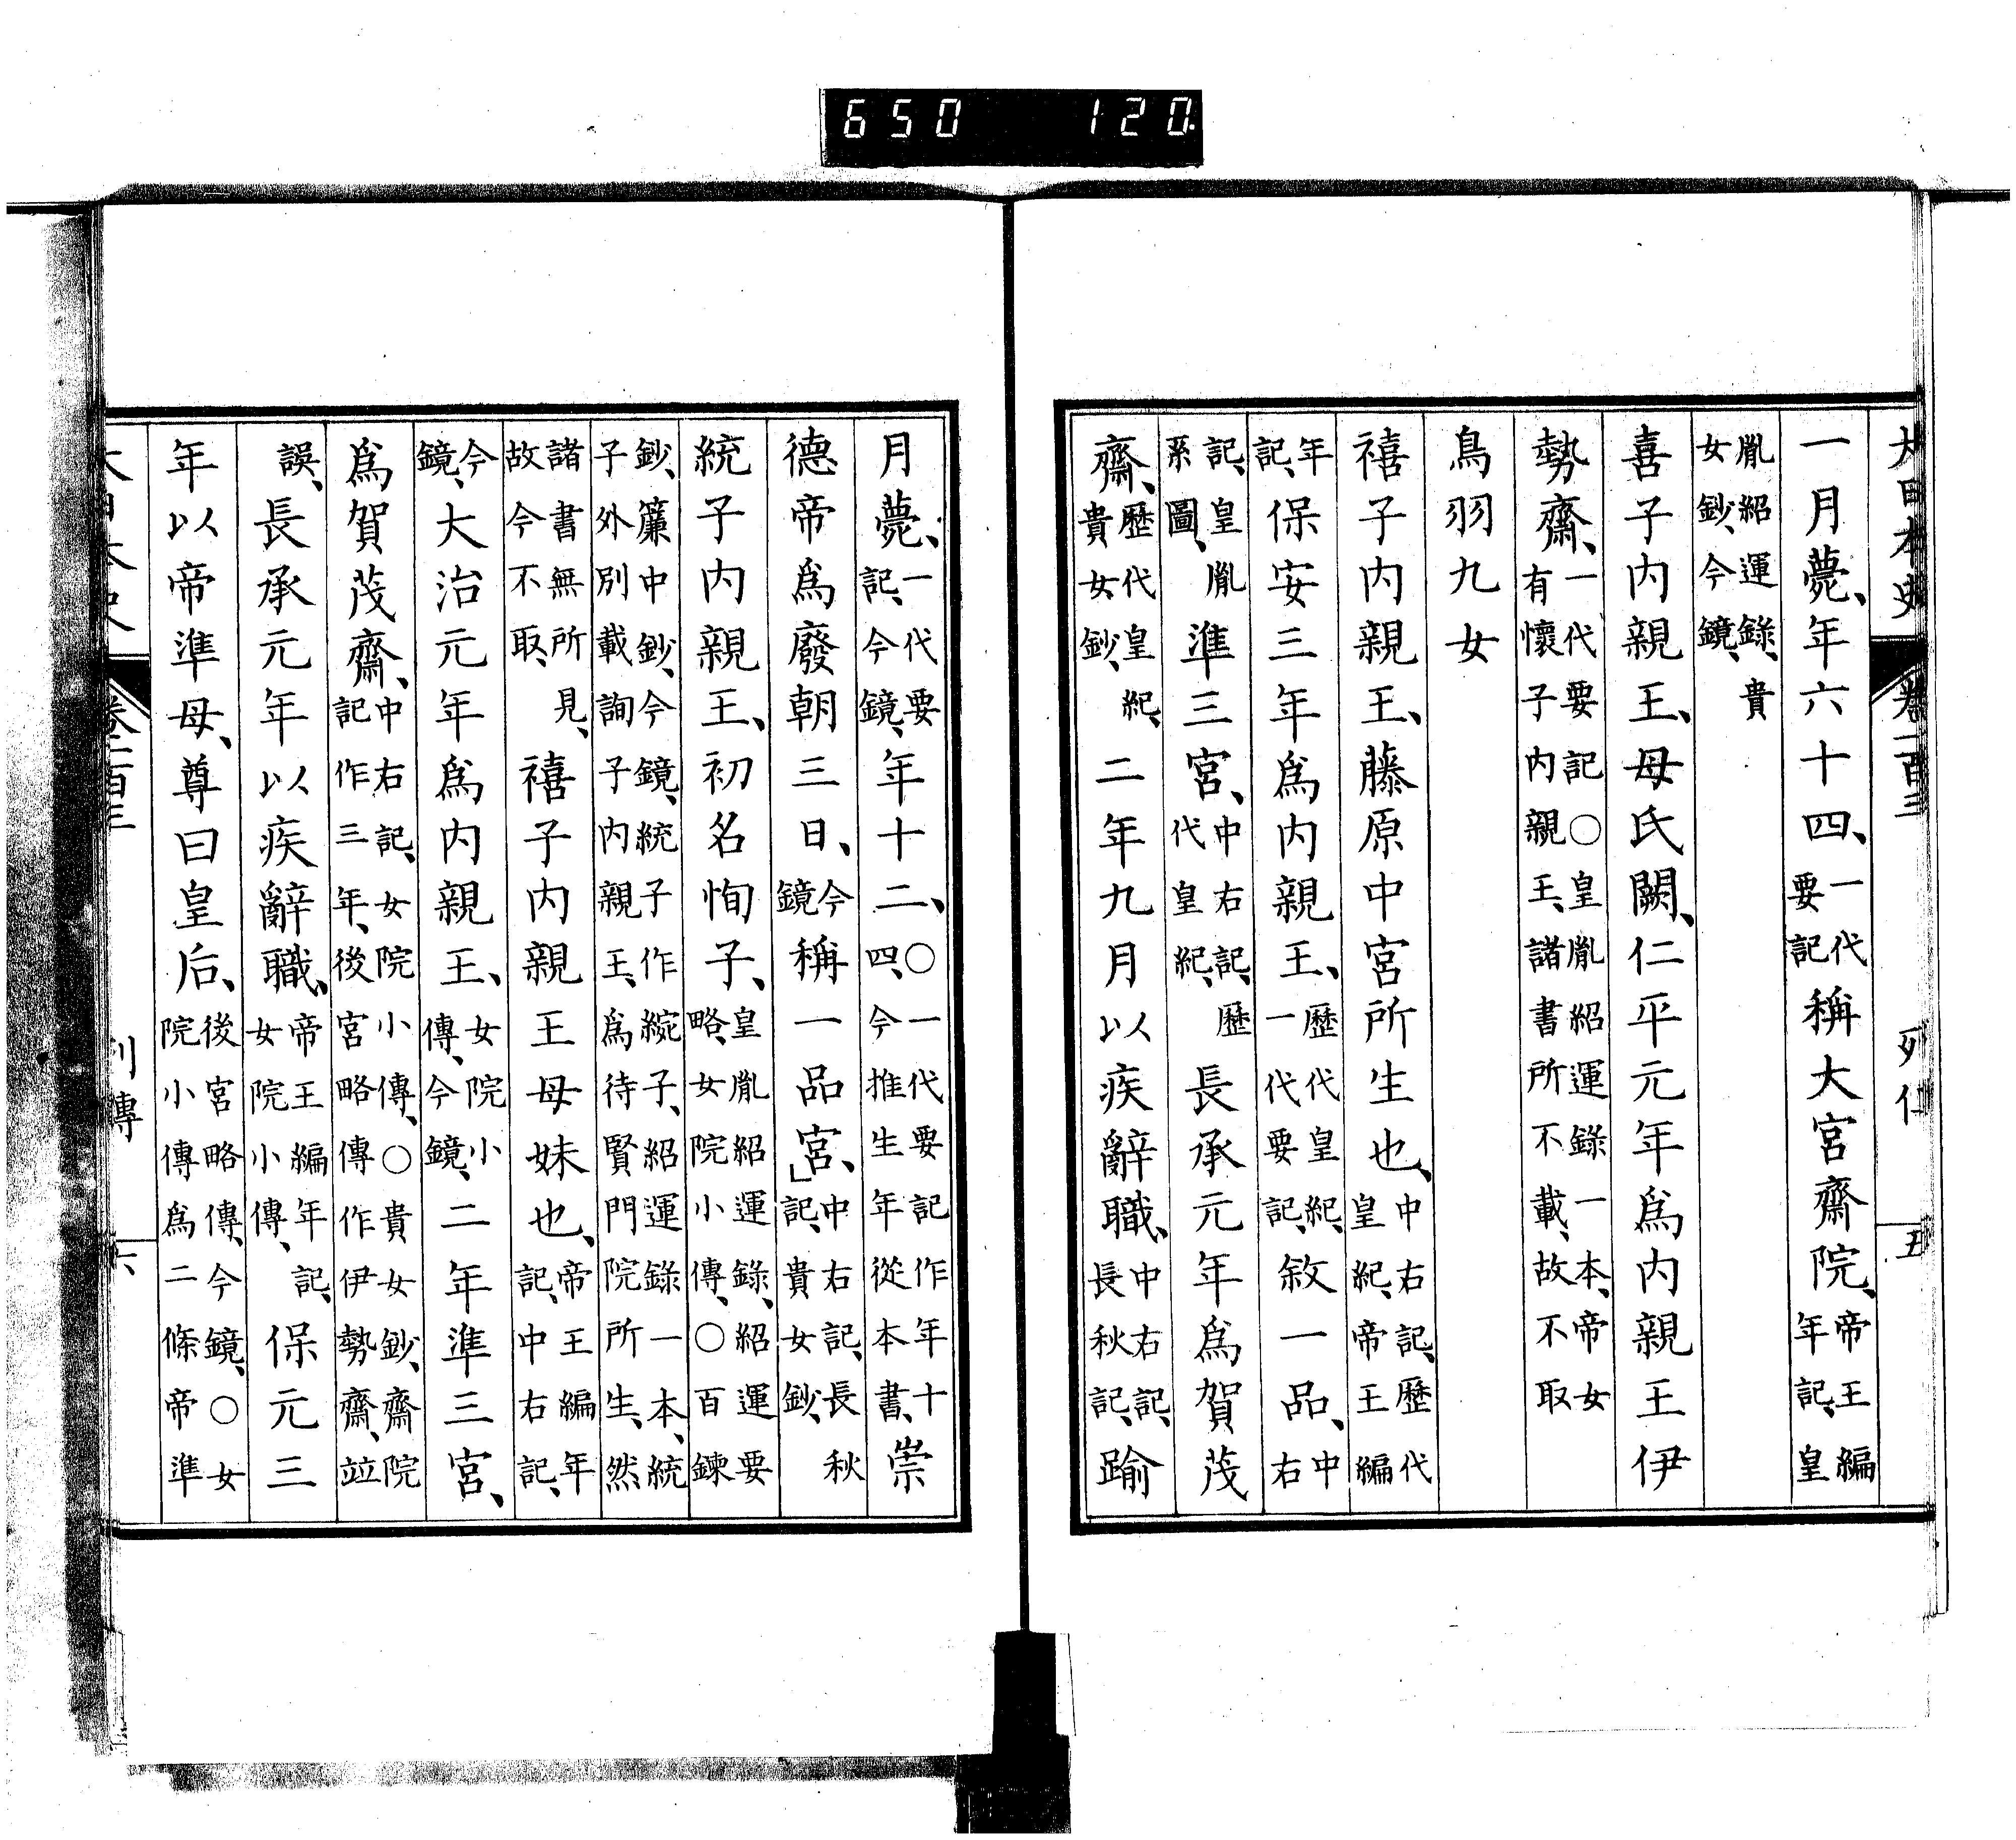 650 120.
大日本史 卷一百三 列傳 五
一月薨、年六十四、一代要記稱大宮齋院、帝王編年記、皇
胤紹運錄、貴女鈔、今鏡、
喜子內親王、母氏闕、仁平元年爲內親王伊
勢齋、一代要記○皇胤紹運錄一本、帝女有懷子內親王、諸書所不載、故不取
鳥羽九女
禧子內親王、藤原中宮所生也、中右記、歷代皇紀、帝王編
年記、保安三年爲內親王、歷代皇紀、一代要記、敘一品、中右
記、皇胤系圖、準三宮、中右記、歷代皇紀、長承元年爲賀茂
齋、歷代皇紀、貴女鈔、二年九月以疾辭職、中右記、長秋記、踰
月薨、一代要記、今鏡、年十二、○一代要記作年十四、今推生年從本書、崇
德帝爲廢朝三日、今鏡稱一品宮、中右記、長秋記、貴女鈔、
統子內親王、初名恂子、皇胤紹運錄、紹運要略、女院小傳、○百鍊
鈔、簾中鈔、今鏡、統子作綩子、紹運錄一本、統子外別載詢子內親王、爲待賢門院所生、然
諸書無所見、故今不取、禧子內親王母妹也、帝王編年記、中右記、
今鏡、大治元年爲內親王、女院小傳、今鏡、二年準三宮、
爲賀茂齋、中右記、女院小傳、○貴女鈔、齋院記作三年、後宮略傳作伊勢齋、竝
誤、長承元年以疾辭職、帝王編年記、女院小傳、保元三
年以帝準母、尊曰皇后、後宮略傳、今鏡、○女院小傳爲二條帝準
大日本史 卷一百三 列傳 六